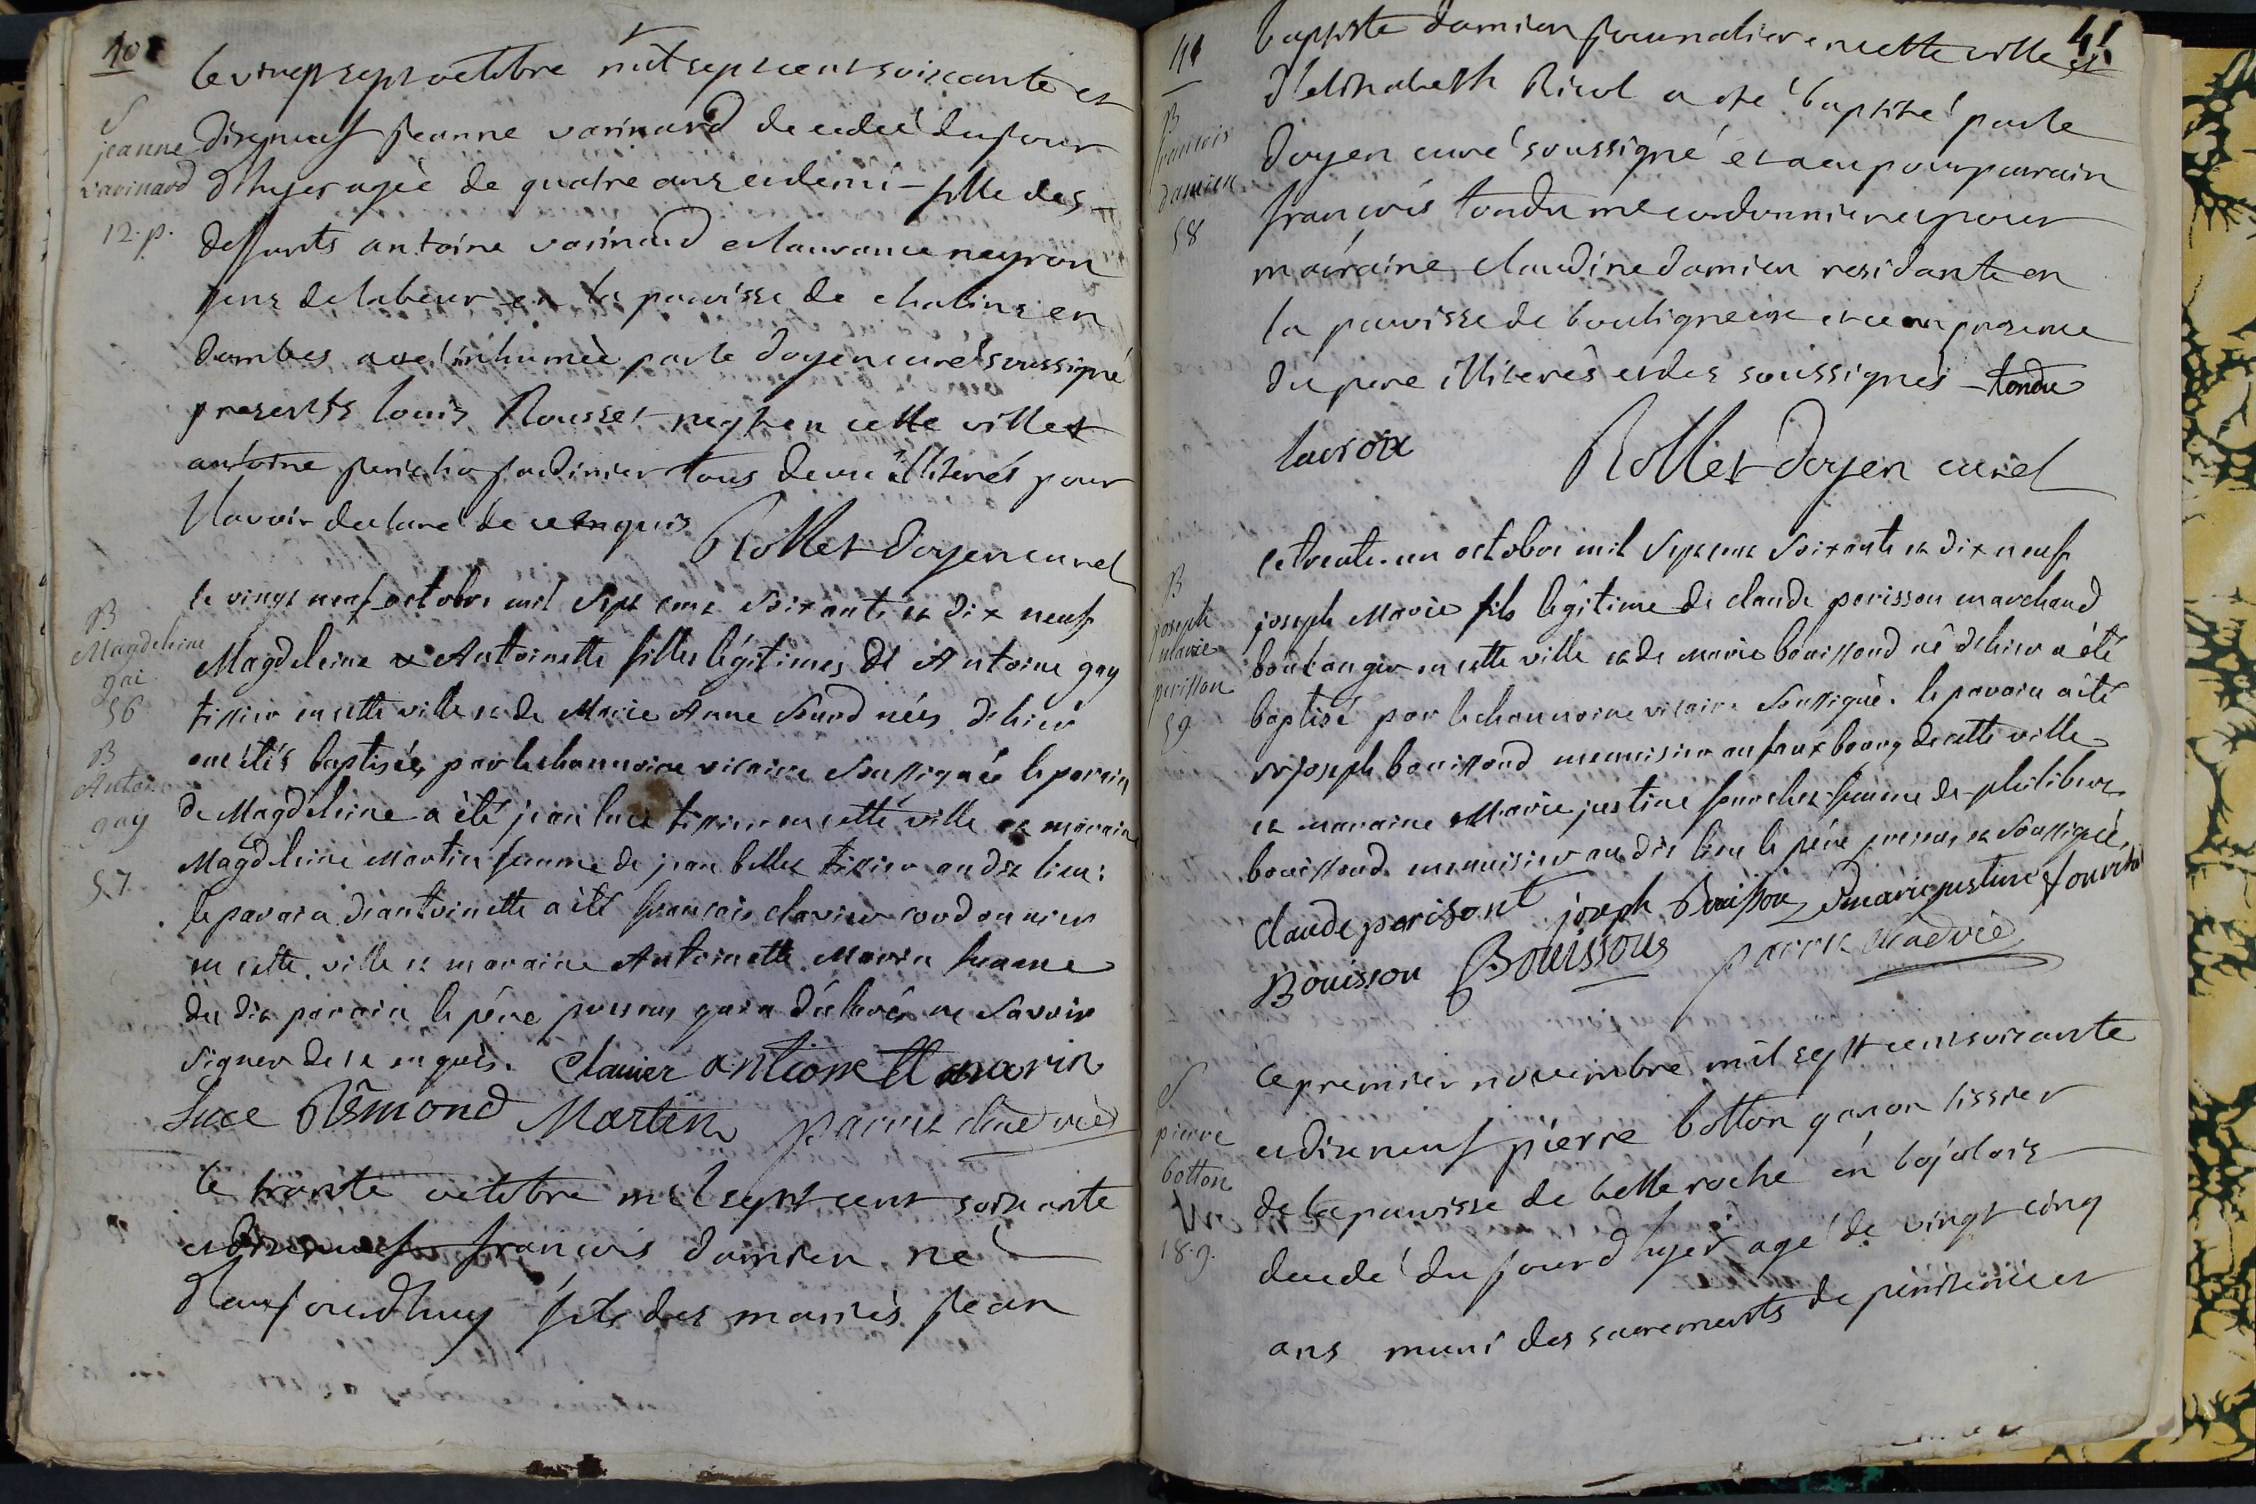 40
le vingt sept octobre mil sept cent soixante et
dixneuf jeanne varinard decedeé du jour
d'hyer ageè de quatre ans et demi – fille des
deffunts antoine varinard et laurance neyron
gens de labeur en la paroisse de chatins en
dombes a eté inhumèe par le doyen curé soussigné
presents louis Rousset negt en cette ville et
antoine jardinier tous deux illiterés pour
l'avoir declaré de ce enquis Rollet doyen curé
S
jeanne
varinard
12. p.
le vingt neuf octobre mil Sept cent Soixante et dix neuf
Magdeleine et Antoinette filles légitimes de Antoine gay
tissier en cette ville et de Marie Anne Sourd nées d'hier
ont étés baptisées par le chanoine vicaire Soussignée le parain
de Magdeleine a été jean luce tissier en cette ville et maraine
Magdeleine Martin femme de jean tissier au dit lieu:
le parain d'antoinette a été françois clavier cordonnier
en cette ville et maraine Antoinette Marin femme
du dit parain le pére present qui a déclaré ne Savoir
signer de ce enquis. Clavier antionette marin
Luce Martin
B
Magdeleine
gai
56
B
Antoi
gay
57
le trante octobre mil sept cent soixante
et dixneuf françois damien né
d'aujourdhuy fils des mariés jean
41
41
baptiste damien journalier en cette ville et
d'elisabeth Ricol a été baptisé par le
doyen curé soussigné et a eu pour parrain
françois tondu me cordonnier et pour
marraine claudine damien residante en
la paroisse de bouligneux et ce en presence
du pere illiterés et des soussignés – tondu
lacroix Rollet doyen curé
B
francois
damien
58
Le trente-un octobre mil Sept cent Soixante et dix neuf
joseph Marie fils légitime de claude perisson marchand
boulanger en cette ville et de marie bouissoud né d'hier a été
baptisé par le chanoine vicaire Soussigné. le parain a été
sr joseph bouissoud menuisier au fauxbourg de cette ville
et maraine Marie justine femme de philibert
bouissoud menuisier au dit lieu le pére present et Soussigné.
claude perisont joseph Bouisson marie justine
Bouisson Bouissous
B
joseph
marie
perisson
59
Le premier novembre mil sept cent soixante
et dixneuf pierre botton garcon tissier
de la paroisse de belleroche en bojolois
decedé du jour d'hyer agé de vingt cinq
ans muni des sacrements de penitence et
S
pierre
botton
18. g.